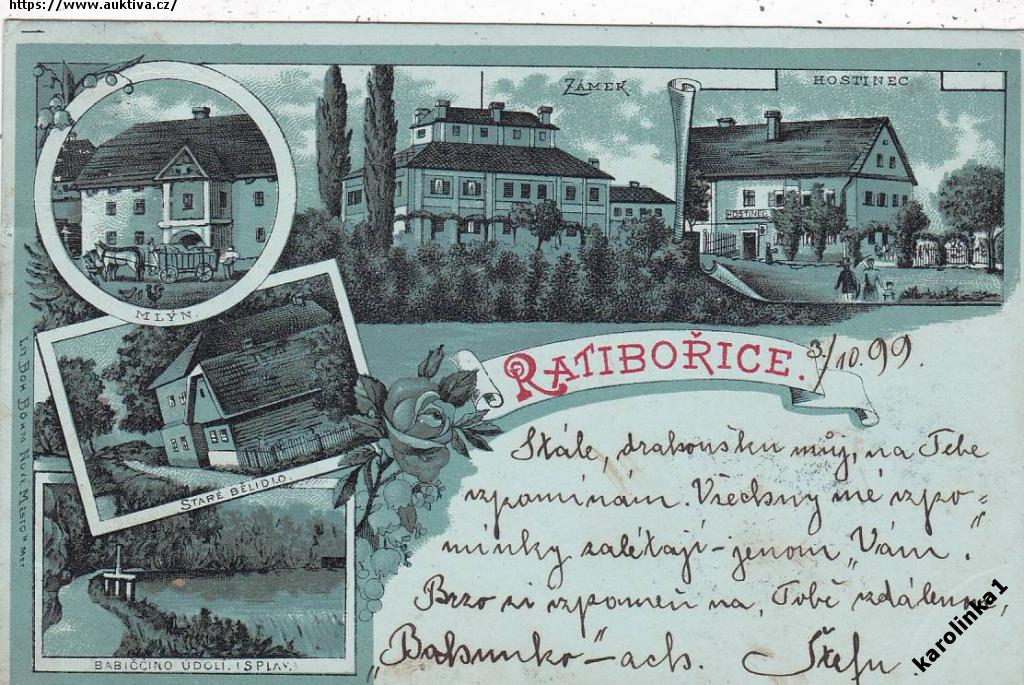 https://www.auktiva.cz/
ZÁMEK.
HOSTINEC
HOSTINEC
MLÝN.
RATIBOŘICE. 3/10.99.
STARÉ BĚLIDLO.
BABIČČINO ÚDOLÍ. (SPLAV.)
LIT BOH BÖHM NOVÉ MĚSTO N MET
Stále, drahoušku můj, na Tebe
vzpomínám. Všechny mé vzpo=
mínky zalétají - jenom „Vám".
Brzo si vzpomeň na, Tobě
- ach. Štefu
karolinka1